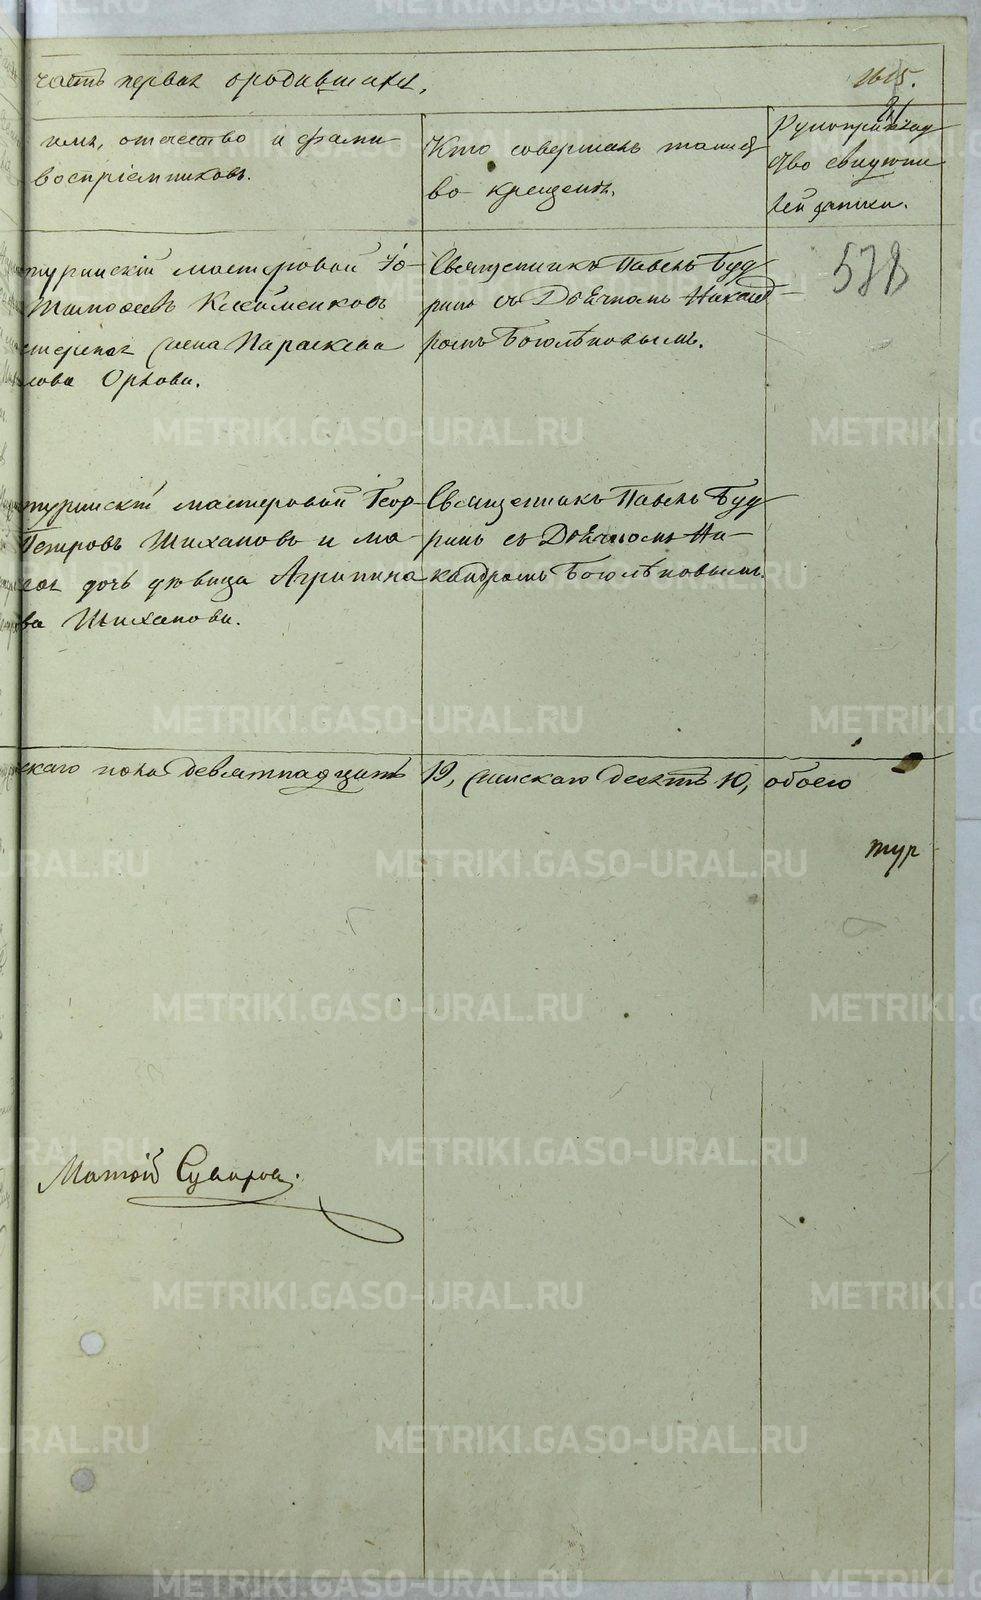 часть первая о родившихся.
имя, отчество и фами-
воспріемниковъ.
Кто совершалъ таинст
во крещенія.
Рукоприклад
ство свидѣте
лей записи.
578
туринскій мастеровой
Тимофеевъ Клименковъ
жена Параскева
лова Орлова.
Священникъ Павелъ Буд
ринъ съ Дьячкомъ Никанд-
ромъ Боголѣповымъ.
туринскій мастеровой Геор-
Петровъ Шихановъ и ма-
дочь дѣвица Агрипина
ва Шиханова.
Священникъ Павелъ Буд
ринъ съ Дьячкомъ Ни-
кандромъ Боголѣповымъ.
скаго пола девятнадцать 19, женскаго десять 10, обоего
тур
METRIKI.GASO-URAL.RU